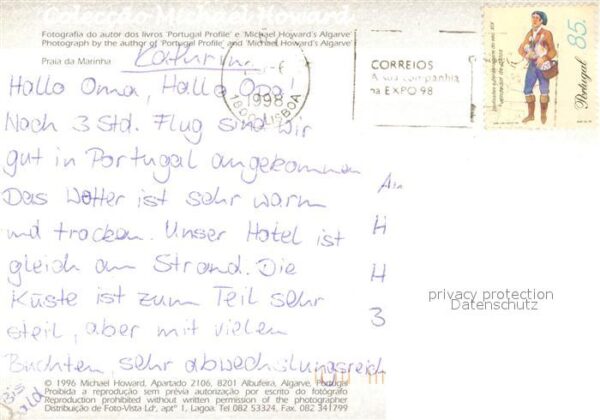 Colecção Michael Howard
Fotografia do autor dos livros 'Portugal Profile' e 'Michael Howard's Algarve'
Photograph by the author of 'Portugal Profile' and 'Michael Howard's Algarve'
Praia da Marinha
Kathrin
Hallo Oma, Hallo Opa!
Nach 3 Std. Flug sind wir
gut in Portugal angekommen
Das Wetter ist sehr warm
und trocken. Unser Hotel ist
gleich am Strand. Die
Küste ist zum Teil sehr
steil, aber mit vielen
Buchten, sehr abwechslungsreich
Bis
bald
1998
LISBOA
CORREIOS
A sua companhia
na EXPO 98
85.
Portugal
An
H
H
3
privacy protection
Datenschutz
© 1996 Michael Howard, Apartado 2106, 8201 Albufeira, Algarve, Portugal
Proibida a reprodução sem prévia autorização por escrito do fotógrafo
Reproduction prohibited without written permission of the photographer
Distribuição de Foto-Vista Ldª, aptº 1, Lagoa Tel 082 53324, Fax. 082 341799